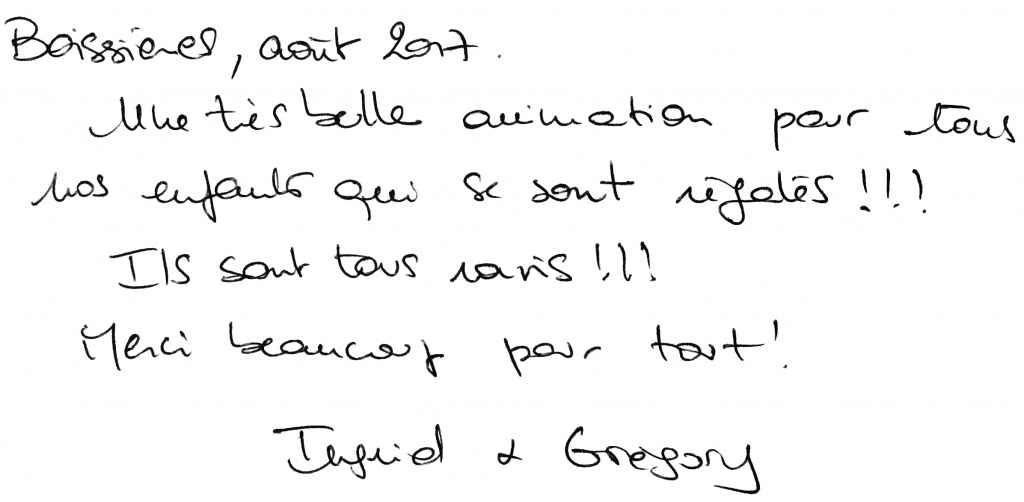 Boissières, août 2017.
Une très belle animation pour tous
nos enfants qui se sont régalés !!!
Ils sont tous ravis !!!
Merci beaucoup pour tout !
Ingrid & Grégory